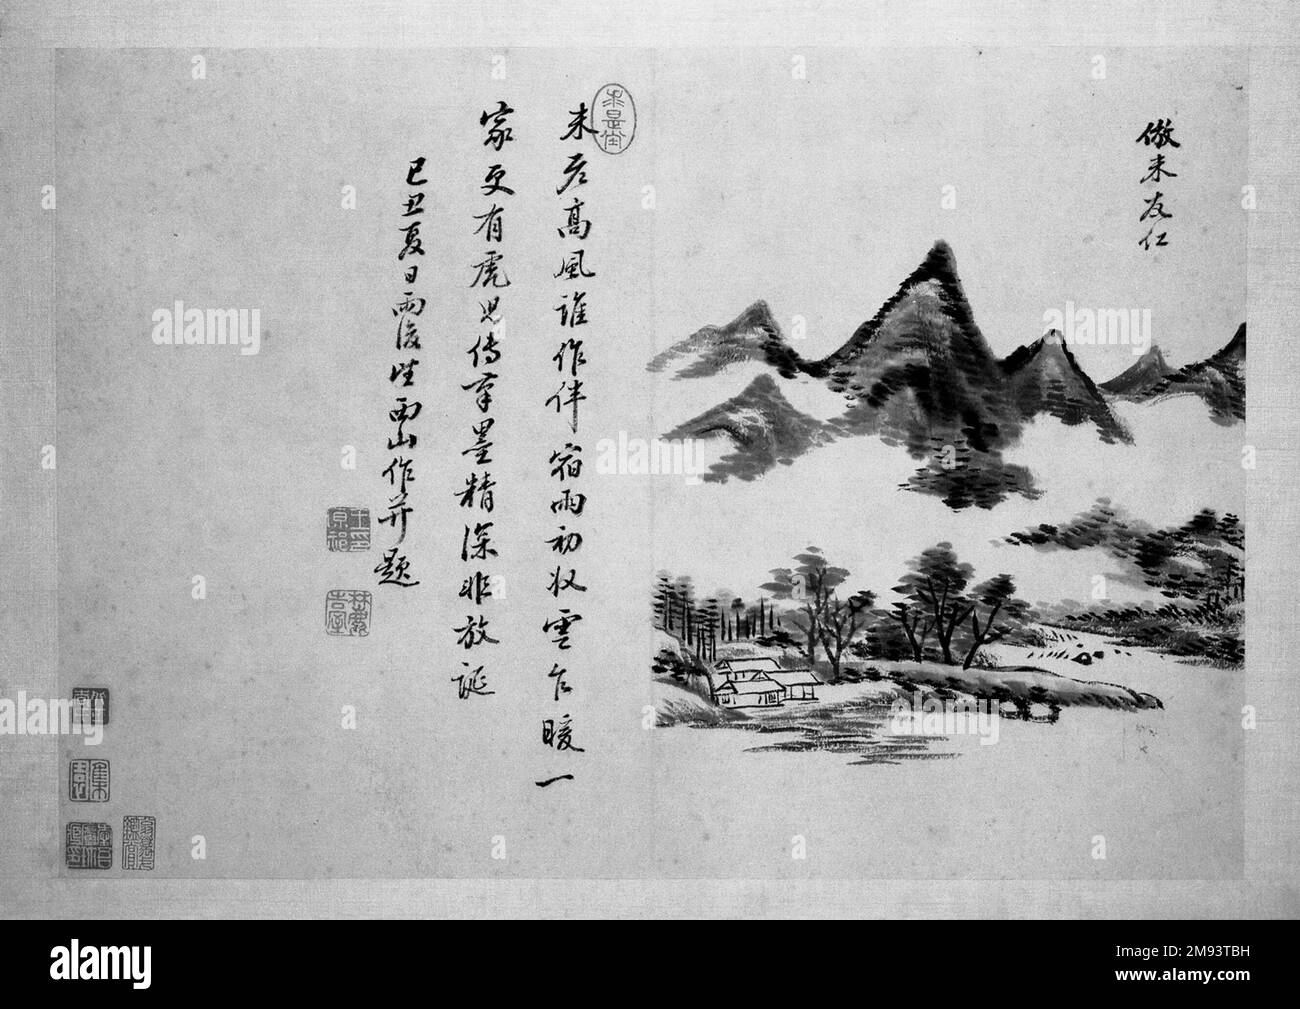 倣米友仁
米老高風誰作伴宿雨初收雲乍暖一
家更有虎兒傳筆墨精深非放誕
己丑夏日雨後西山作并題
王原祁印
alamy
alamy
alamy
alamy
Image ID: 2M93TBH
www.alamy.com